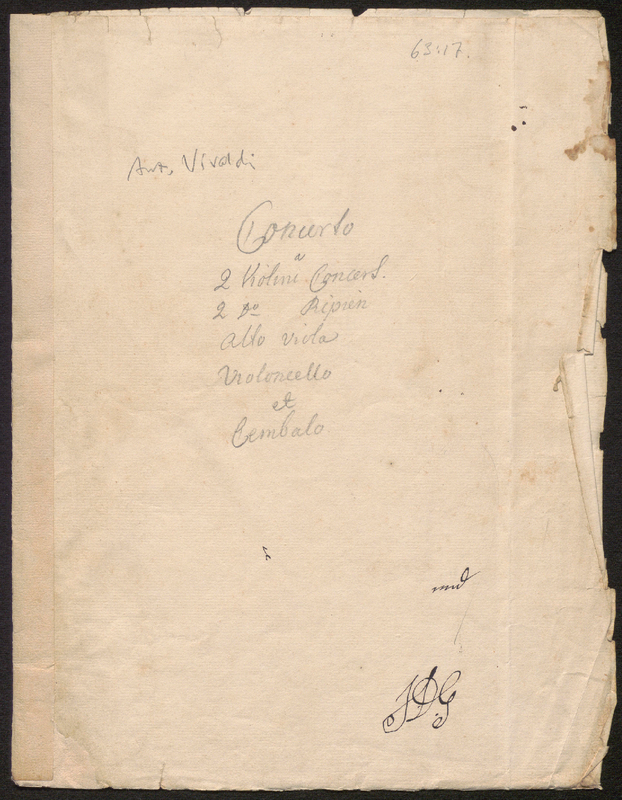 63:17.
Ant. Vivaldi
Concerto
a
2 Violini Concert.
2 Do Ripien
Alto viola
Violoncello
et
Cembalo
JDG